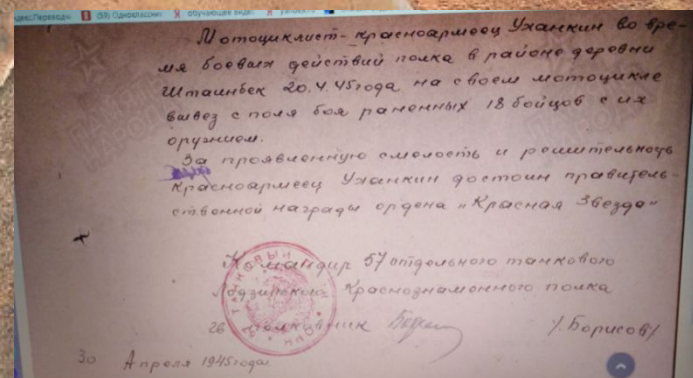 (59) Одноклассники
обучающее видео
Мотоциклист-красноармеец Уханкин во вре-
мя боевых действий полка в районе деревни
Штаинбек 20.4.45года на своем мотоцикле
вывез с поля боя раненных 18 бойцов с их
оружием.
За проявленную смелость и решительнось
Красноармеец Уханкин достоин правитель-
ственной награды ордена "Красная Звезда"
Командир 57 отдельного танкового
Краснознаменного полка
полковник /Борисов/
30 Апреля 1945года